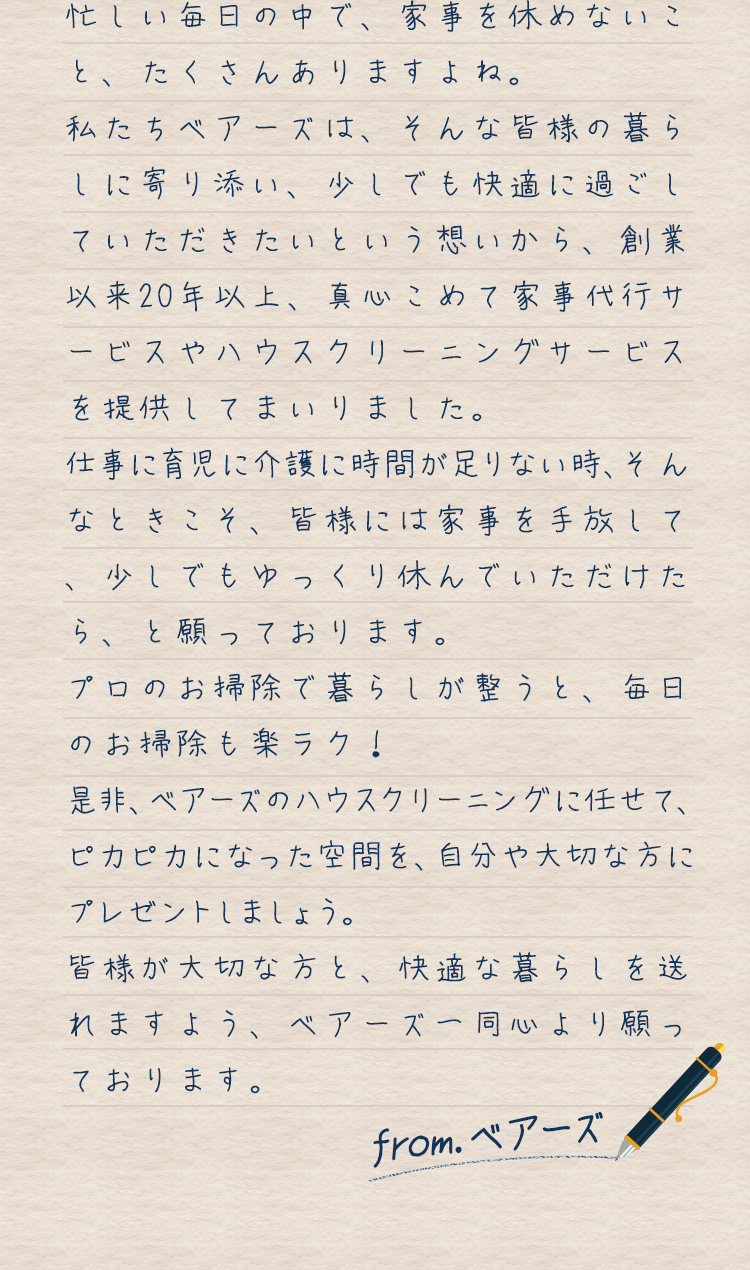 忙しい毎日の中で、家事を休めないこ
と、たくさんありますよね。
私たちベアーズは、そんな皆様の暮ら
しに寄り添い、少しでも快適に過ごし
ていただきたいという想いから、創業
以来20年以上、真心こめて家事代行サ
ービスやハウスクリーニングサービス
を提供してまいりました。
仕事に育児に介護に時間が足りない時、そん
なときこそ、皆様には家事を手放して
、少しでもゆっくり休んでいただけた
ら、と願っております。
プロのお掃除で暮らしが整うと、毎日
のお掃除も楽ラク！
是非、ベアーズのハウスクリーニングに任せて、
ピカピカになった空間を、自分や大切な方に
プレゼントしましょう。
皆様が大切な方と、快適な暮らしを送
れますよう、ベアーズ一同心より願っ
ております。
from.ベアーズ